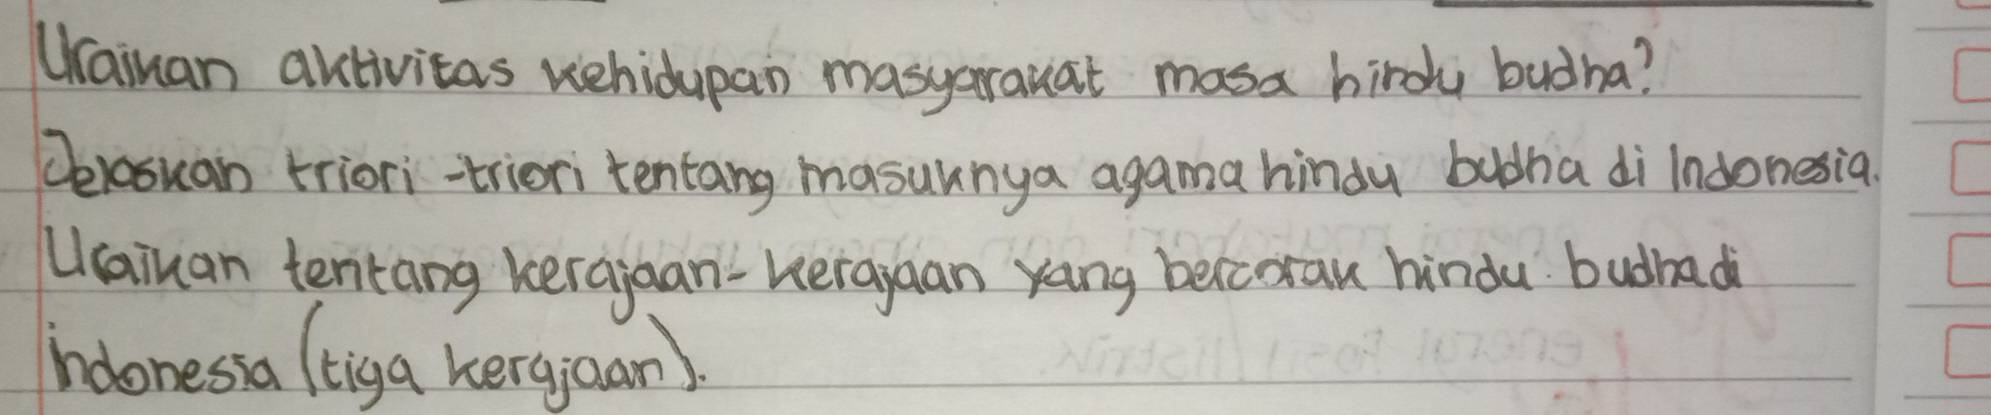 Uraikan aktivitas kehidupan masyararakat masa hindu budha?
Jelaskan triori-triori tentang masuknya agama hindu budha di Indonesia.
Uraikan tentang kerajaan-kerajaan yang bercorak hindu budha di
indonesia (tiga kerajaan).